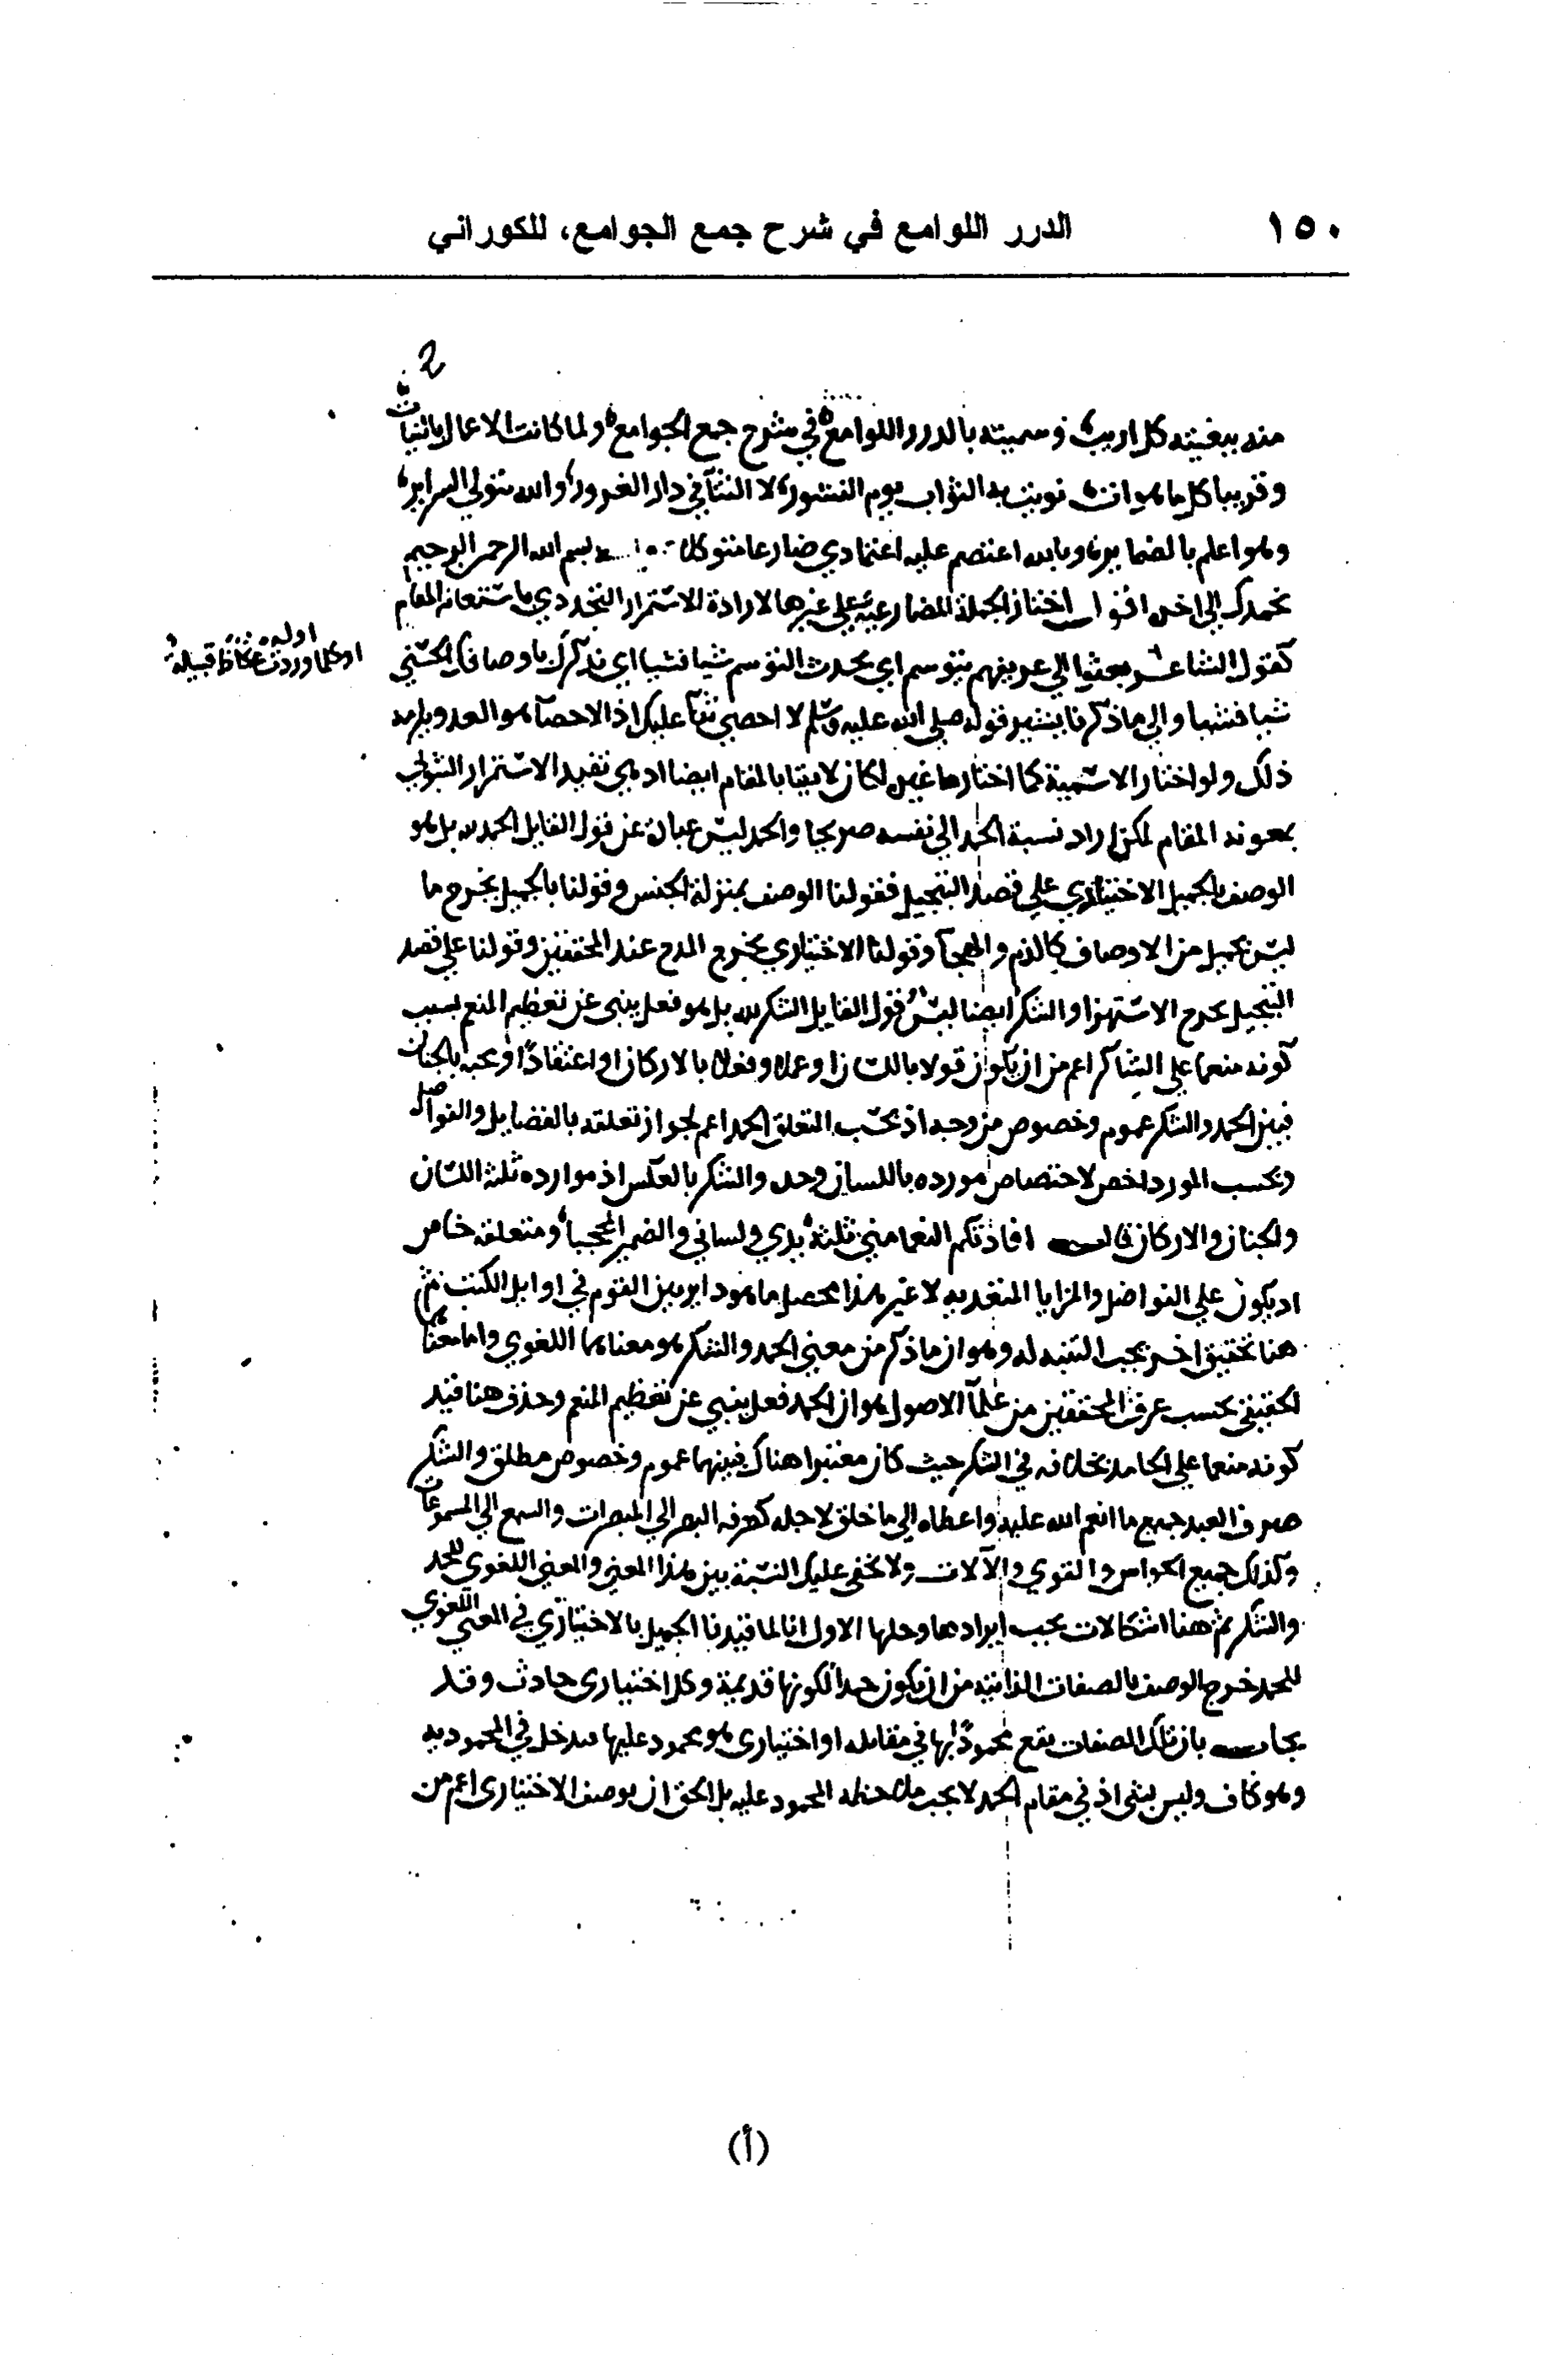 ١٥٠ الدرر اللوامع في شرح جمع الجوامع، للكوراني
2
منه ببغيته كل اريب وسميته بالدرر اللوامع في شرح جمع الجوامع ولما كانت الاعمال بالنيات
وقريبا كل ما هو ات نويت به الثواب يوم النشور لا الثنآ في دار الغرور والله متولي السراير
وهو اعلم بالضماير وبالله اعتصم عليه اعتمادي ضارعا متوكلا بسم الله الرحمن الرحيم
نحمدك الي اخره اقول اختار الجملة المضارعية علي غيرها لارادة الاستمرار التجددي باستعانة المقام
كقول الشاعر بعثوا الي عريفهم يتوسم اي يحدث التوسم شيا فشيا اي نذكرك باوصافك الحسني
اوله
او كلما وردت عكاظ قبيلة
شيا فشيا والي ما ذكرنا يشير قوله صلي الله عليه وسلم لا احصي ثنآ عليك اذ الاحصآ هو العد ويلزمه
ذلك ولو اختار الاسمية كما اختارها غيره لكان لايقا بالمقام ايضا اذ هي تفيد الاستمرار الثبوتي
بمعونة المقام لكن اراد نسبة الحمد الي نفسه صريحا والحمد ليس عبارة عن قول القايل الحمد لله بل هو
الوصف بالجميل الاختياري علي قصد التبجيل فقولنا الوصف بمنزلة الجنس وقولنا بالجميل يخرج ما
ليس بجميل من الاوصاف كالذم والهجآ وقولنا الاختياري يخرج المدح عند المحققين وقولنا علي قصد
التبجيل يخرج الاستهزا والشكر ايضا ليس قول القايل الشكر لله بل هو فعل ينبي عن تعظيم المنعم بسبب
كونه منعما علي الشاكر اعم من ان يكون قولا باللسان او عملا وفعلا بالاركان او اعتقادًا ومحبة بالجنان
فبين الحمد والشكر عموم وخصوص من وجه اذ بحسب المتعلق الحمد اعم لجواز تعلقه بالفضايل والفواضل
وبحسب المورد اخص لاختصاص مورده باللسان وحده والشكر بالعكس اذ موارده ثلثة اللسان
والجنان والاركان قال افادتكم النعما مني ثلثة يدي ولساني والضمير المحجبا ومتعلقه خاص
اذ يكون علي الفواضل والمزايا المتعدية لا غير هذا محصل ما هو داير بين القوم في اوايل الكتب ثم
هنا تحقيق اخر يجب التنبه له وهو ان ما ذكر من معني الحمد والشكر هو معناهما اللغوي واما معناهما
الحقيقي بحسب عرف المحققين من علمآ الاصول هو ان الحمد فعل ينبي عن تعظيم المنعم وحذف هنا قيد
كونه منعما علي الحامد بخلافه في الشكر حيث كان معتبرا هناك فبينهما عموم وخصوص مطلق والشكر
صرف العبد جميع ما انعم الله عليه واعطاه الي ما خلق لاجله كصرفه البصر الي المبصرات والسمع الي المسموعات
وكذلك جميع الحواس والقوي والآلات ولا يخفي عليك النسبة بين هذا المعني والمعني اللغوي للحمد
والشكر ثم هنا اشكالات يجب ايرادها وحلها الاول انا لما قيدنا الجميل بالاختياري في المعني اللغوي
للحمد خرج الوصف بالصفات الذاتية من ان يكون حمدا لكونها قديمة وكل اختياري حادث وقد
يجاب بان تلك الصفات يقع محمودًا بها في مقابلة او اختياري هو محمود عليها فدخل في المحمود به
وهو كاف وليس بشي اذ في مقام الحمد لا يجب ملاحظة المحمود عليه بل الحق ان يوصف الاختياري اعم من
(أ)